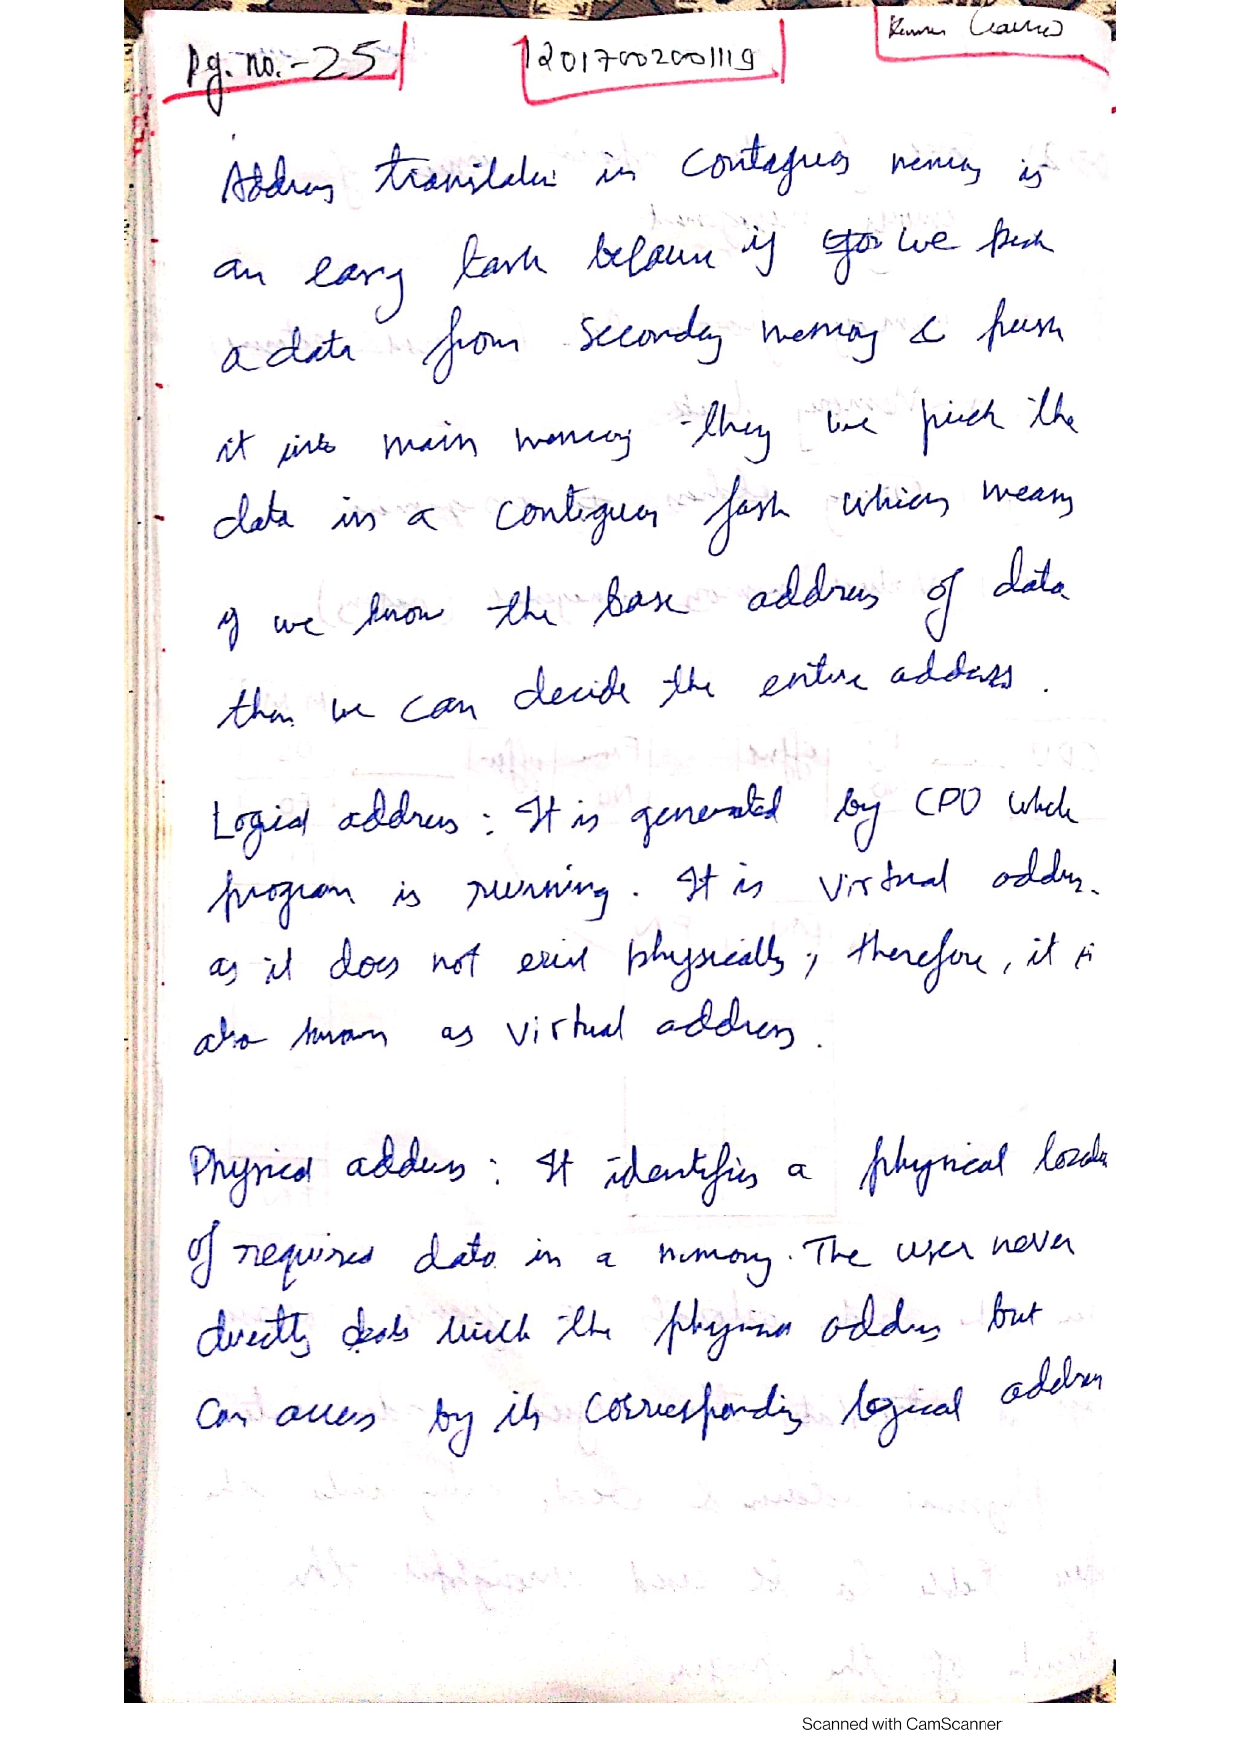 Pg. no.:-25
12017002001119
Address translation in contagious memory is
an easy task because if we pick
a data from Secondary memory & push
it into main memory they we pick the
data in a contiguous fash which means
if we know the base address of data
then we can decide the entire address.
Logical address : It is generated by CPU while
program is running. It is virtual address
as it does not exist physically, therefore, it is
also known as virtual address.
Physical address : It identifies a physical location
of required data in a memory. The user never
directly deals with the physical address but
can access by its corresponding logical address
Scanned with CamScanner